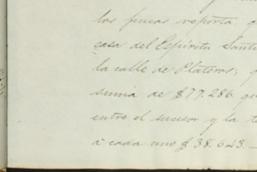 las fincas reporta q
casa del Espíritu Santo
la calle de Plateros, q
suma de $77.286 que
entre el sucesor y la t
à cada uno $38.643.—